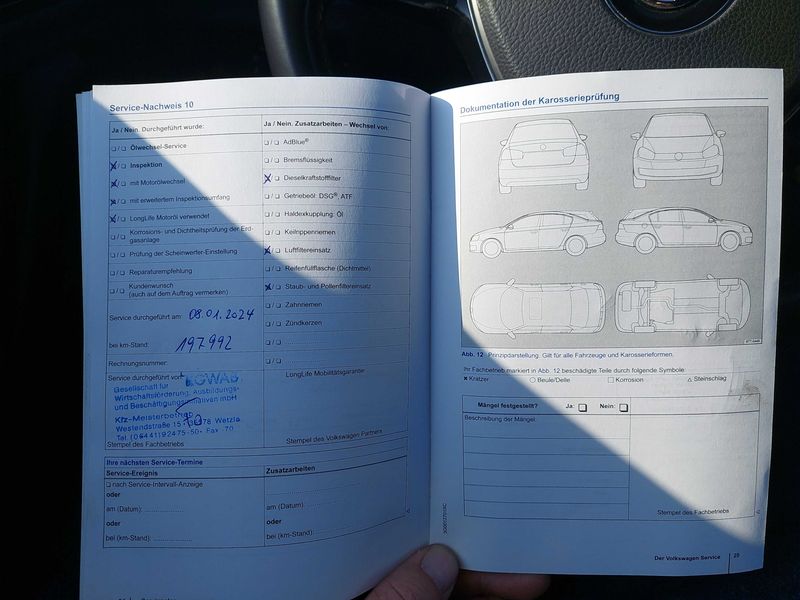 Service-Nachweis 10
Ja / Nein. Durchgeführt wurde:
Ölwechsel-Service
Inspektion
mit Motorölwechsel
mit erweitertem Inspektionsumfang
LongLife Motoröl verwendet
Korrosions- und Dichtheitsprüfung der Erd-
gasanlage
Prüfung der Scheinwerfer-Einstellung
Reparaturempfehlung
Kundenwunsch
(auch auf dem Auftrag vermerken)
Service durchgeführt am: 08.01.2024
bei km-Stand: 197992
Rechnungsnummer:
Service durchgeführt von:
Gesellschaft für
Wirtschaftsförderung, Ausbildungs-
und Beschäftigungsinitiativen mbH
Kfz-Meisterbetrieb
Stempel des Fachbetriebs
Ja / Nein. Zusatzarbeiten – Wechsel von:
AdBlue®
Bremsflüssigkeit
Dieselkraftstofffilter
Getriebeöl: DSG®, ATF
Haldexkupplung: Öl
Keilrippenriemen
Luftfiltereinsatz
Reifenfüllflasche (Dichtmittel)
Staub- und Pollenfiltereinsatz
Zahnriemen
Zündkerzen
LongLife Mobilitätsgarantie
Stempel des Volkswagen Partners
Ihre nächsten Service-Termine
Service-Ereignis
nach Service-Intervall-Anzeige
oder
am (Datum):
oder
bei (km-Stand):
Zusatzarbeiten
am (Datum):
oder
bei (km-Stand):
Dokumentation der Karosserieprüfung
Abb. 12 Prinzipdarstellung. Gilt für alle Fahrzeuge und Karosserieformen.
Ihr Fachbetrieb markiert in Abb. 12 beschädigte Teile durch folgende Symbole:
× Kratzer ○ Beule/Delle □ Korrosion △ Steinschlag
Mängel festgestellt? Ja: Nein:
Beschreibung der Mängel:
Stempel des Fachbetriebs
Der Volkswagen Service